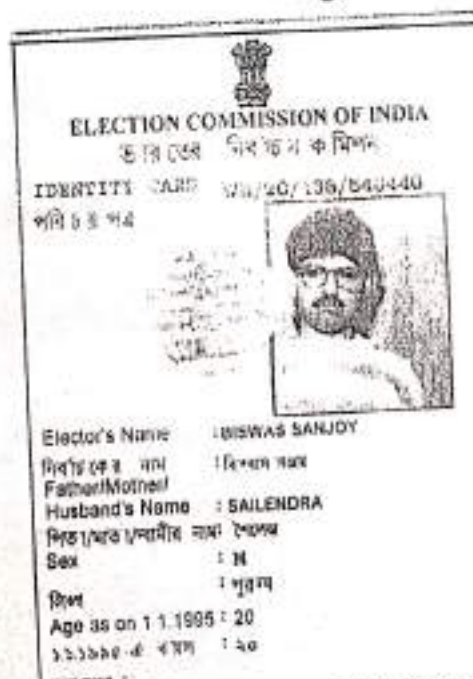 ELECTION COMMISSION OF INDIA
ভারতের নির্বাচন কমিশন
IDENTITY CARD
পরিচয় পত্র
Elector's Name : BISWAS SANJOY
নির্বাচকের নাম : বিশ্বাস সঞ্জয়
Father/Mother/
Husband's Name : SAILENDRA
পিতা/মাতা/স্বামীর নাম : শৈলেন্দ্র
Sex : M
লিঙ্গ : পুরুষ
Age as on 1.1.1995 : 20
১.১.১৯৯৫-এ বয়স : ২০